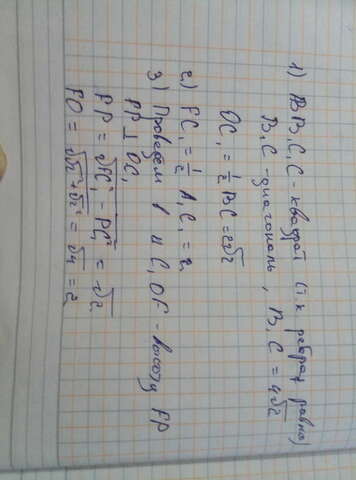 1) BB₁C₁C - квадрат (т.к ребра равны)
B₁C - диагональ, B₁C = 4√2
OC₁ = 1/2 BC = 2√2
2) FC₁ = 1/2 A₁C₁ = 2
3) Проведем в C₁OF - высоту FP
FP ⊥ OC₁
FP = √FC₁² - PC₁² = √2
FO = √√2² + √2² = √4 = 2